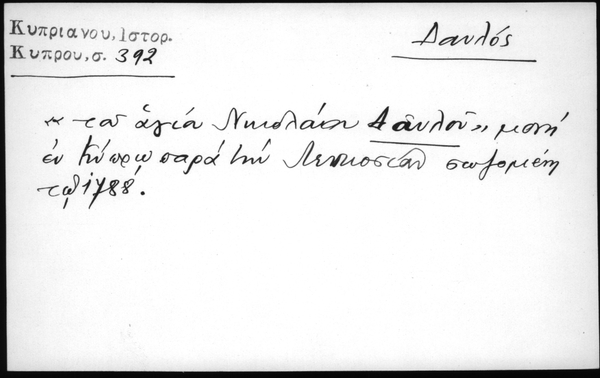 Κυπριανου, Ιστορ.
Κυπρου, σ. 392
Δαυλός
« τοῦ ἁγίου Νικολάου Δαυλοῦ», μονή
ἐν Κύπρῳ παρά τήν Λευκοσίαν σωζομένη
τῷ 1788.